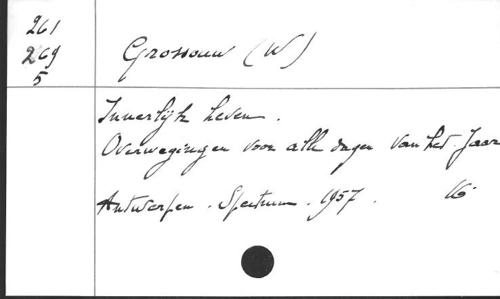 261
269
5
Grossouw (W)
Innerlijk leven.
Overwegingen voor alle dagen van het Jaar
Antwerpen. Spectrum. 1957. 16°